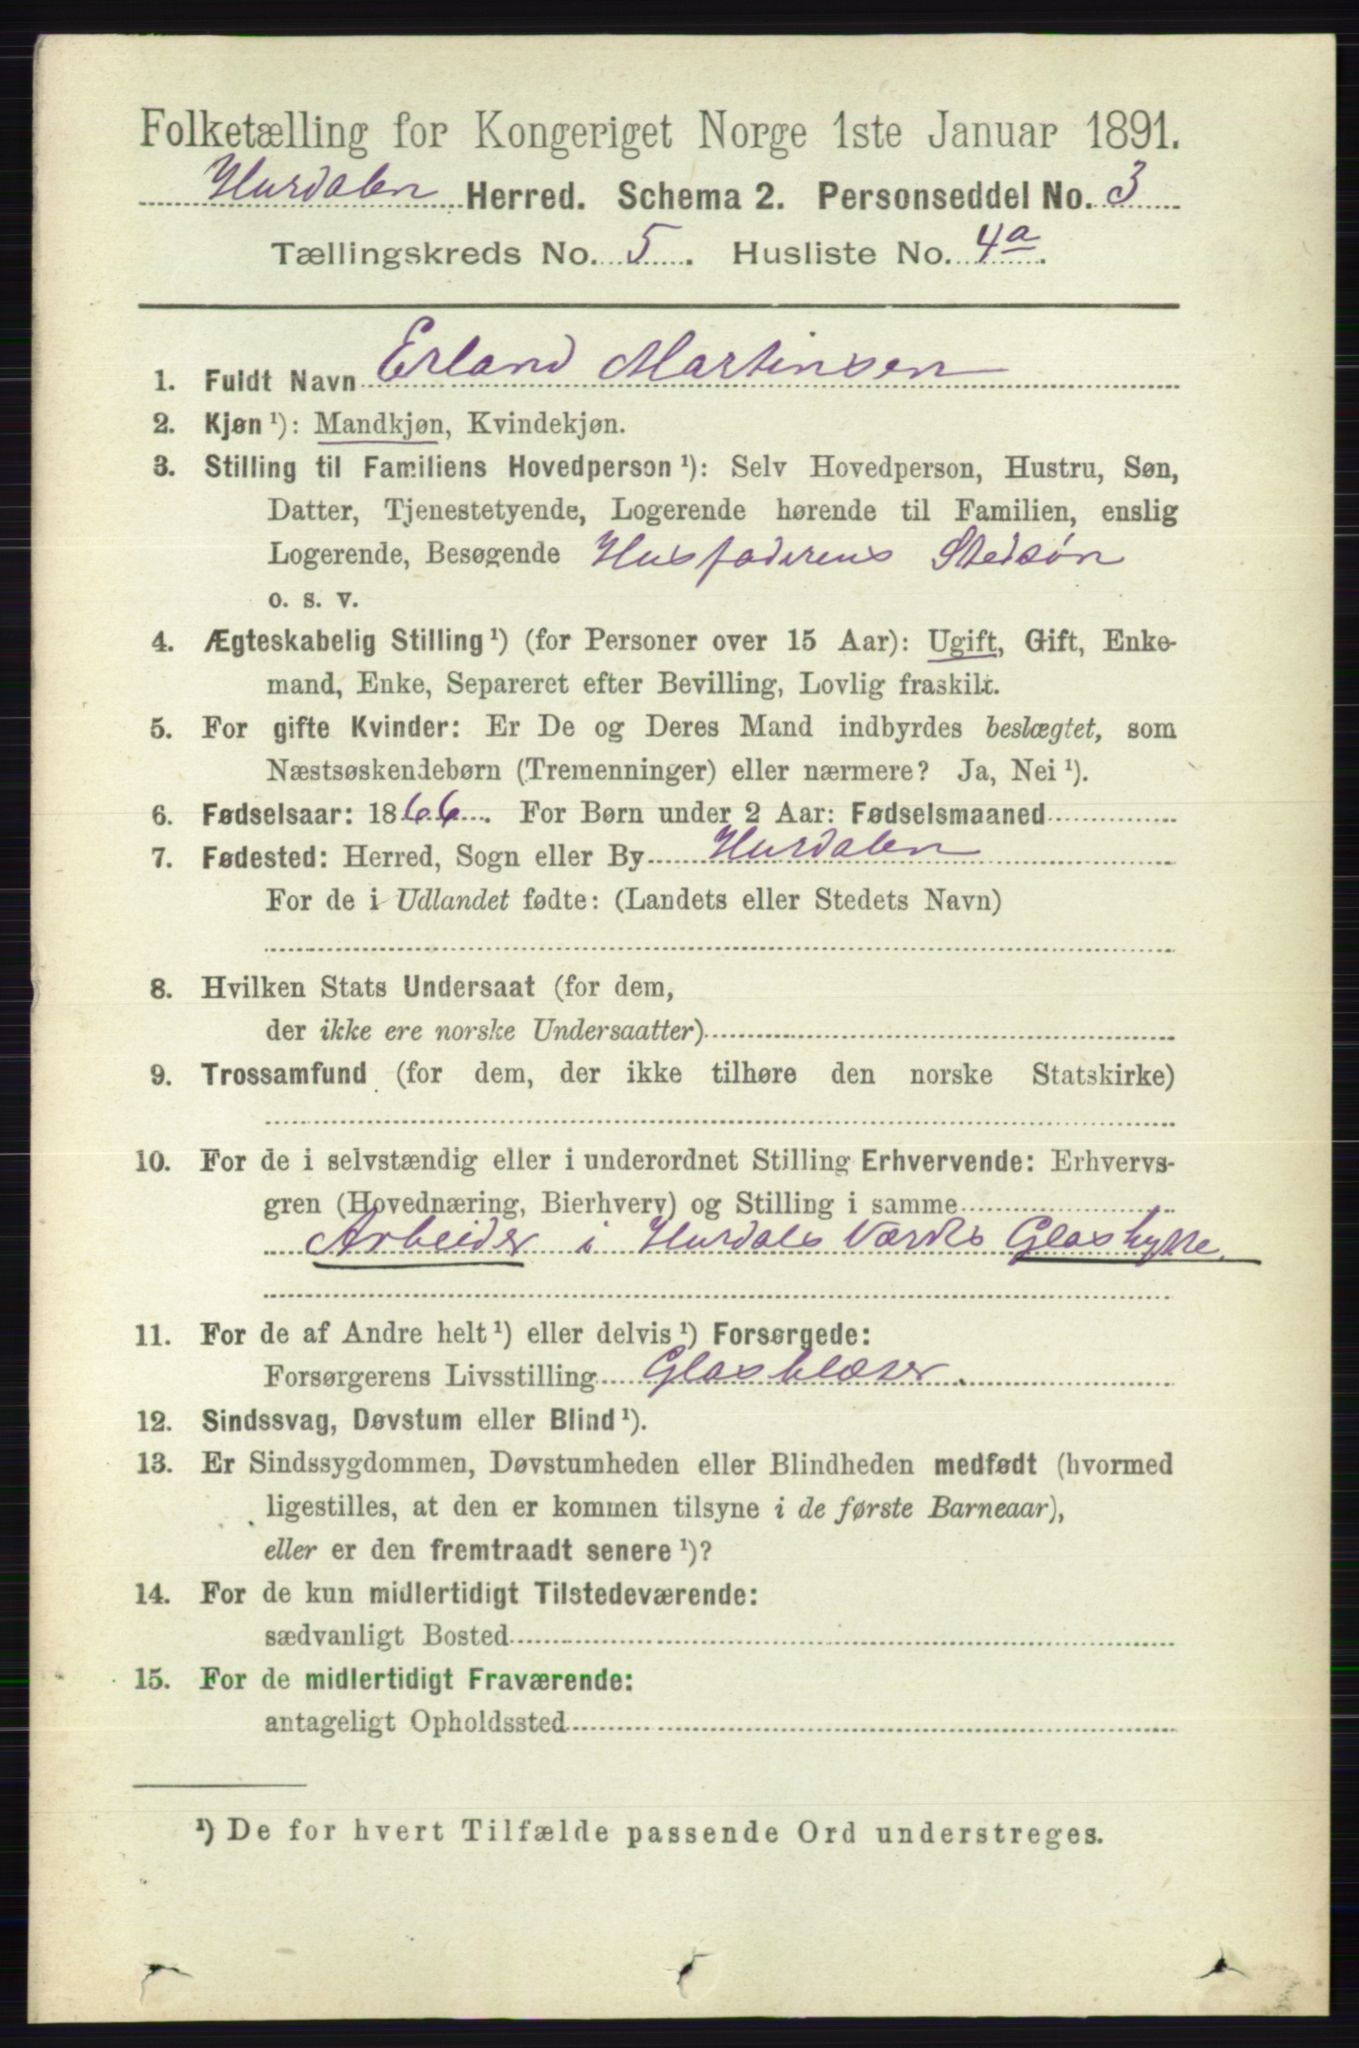 Folketælling for Kongeriget Norge 1ste Januar 1891.
Hurdalen Herred. Schema 2. Personseddel No. 3
Tællingskreds No. 5. Husliste No. 4a.
1. Fuldt Navn Erland Martinsen
2. Kjøn ¹): Mandkjøn, Kvindekjøn.
3. Stilling til Familiens Hovedperson ¹): Selv Hovedperson, Hustru, Søn,
Datter, Tjenestetyende, Logerende hørende til Familien, enslig
Logerende, Besøgende Husfaderens Stedsøn
o. s. v.
4. Ægteskabelig Stilling ¹) (for Personer over 15 Aar): Ugift, Gift, Enke-
mand, Enke, Separeret efter Bevilling, Lovlig fraskilt.
5. For gifte Kvinder: Er De og Deres Mand indbyrdes beslægtet, som
Næstsøskendebørn (Tremenninger) eller nærmere? Ja, Nei ¹).
6. Fødselsaar: 1866. For Børn under 2 Aar: Fødselsmaaned
7. Fødested: Herred, Sogn eller By Hurdalen
For de i Udlandet fødte: (Landets eller Stedets Navn)
8. Hvilken Stats Undersaat (for dem,
der ikke ere norske Undersaatter)
9. Trossamfund (for dem, der ikke tilhøre den norske Statskirke)
10. For de i selvstændig eller i underordnet Stilling Erhvervende: Erhvervs-
gren (Hovednæring, Bierhverv) og Stilling i samme
Arbeider i Hurdals Værks Glashytte.
11. For de af Andre helt ¹) eller delvis ¹) Forsørgede:
Forsørgerens Livsstilling Glasblæser.
12. Sindssvag, Døvstum eller Blind ¹).
13. Er Sindssygdommen, Døvstumheden eller Blindheden medfødt (hvormed
ligestilles, at den er kommen tilsyne i de første Barneaar),
eller er den fremtraadt senere ¹)?
14. For de kun midlertidigt Tilstedeværende:
sædvanligt Bosted
15. For de midlertidigt Fraværende:
antageligt Opholdssted
¹) De for hvert Tilfælde passende Ord understreges.